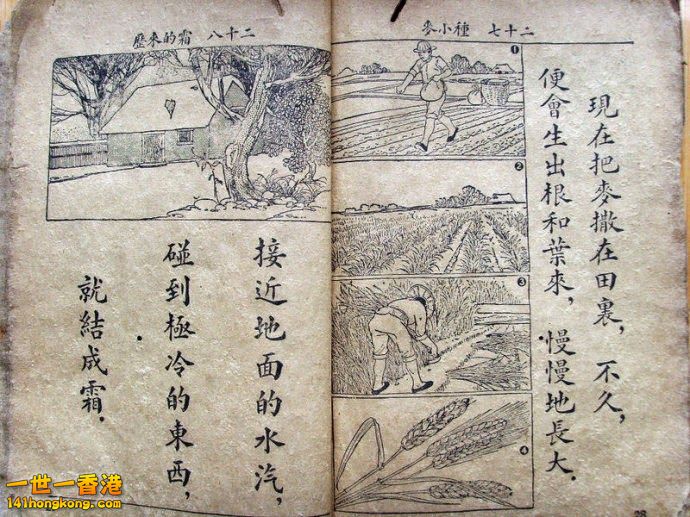 二十七 種小麥
現在把麥撒在田裏，不久，
便會生出根和葉來，慢慢地長大。
1
2
3
4
二十八 霜的來歷
接近地面的水汽，
碰到極冷的東西，
就結成霜。
一世一香港
141hongkong.com